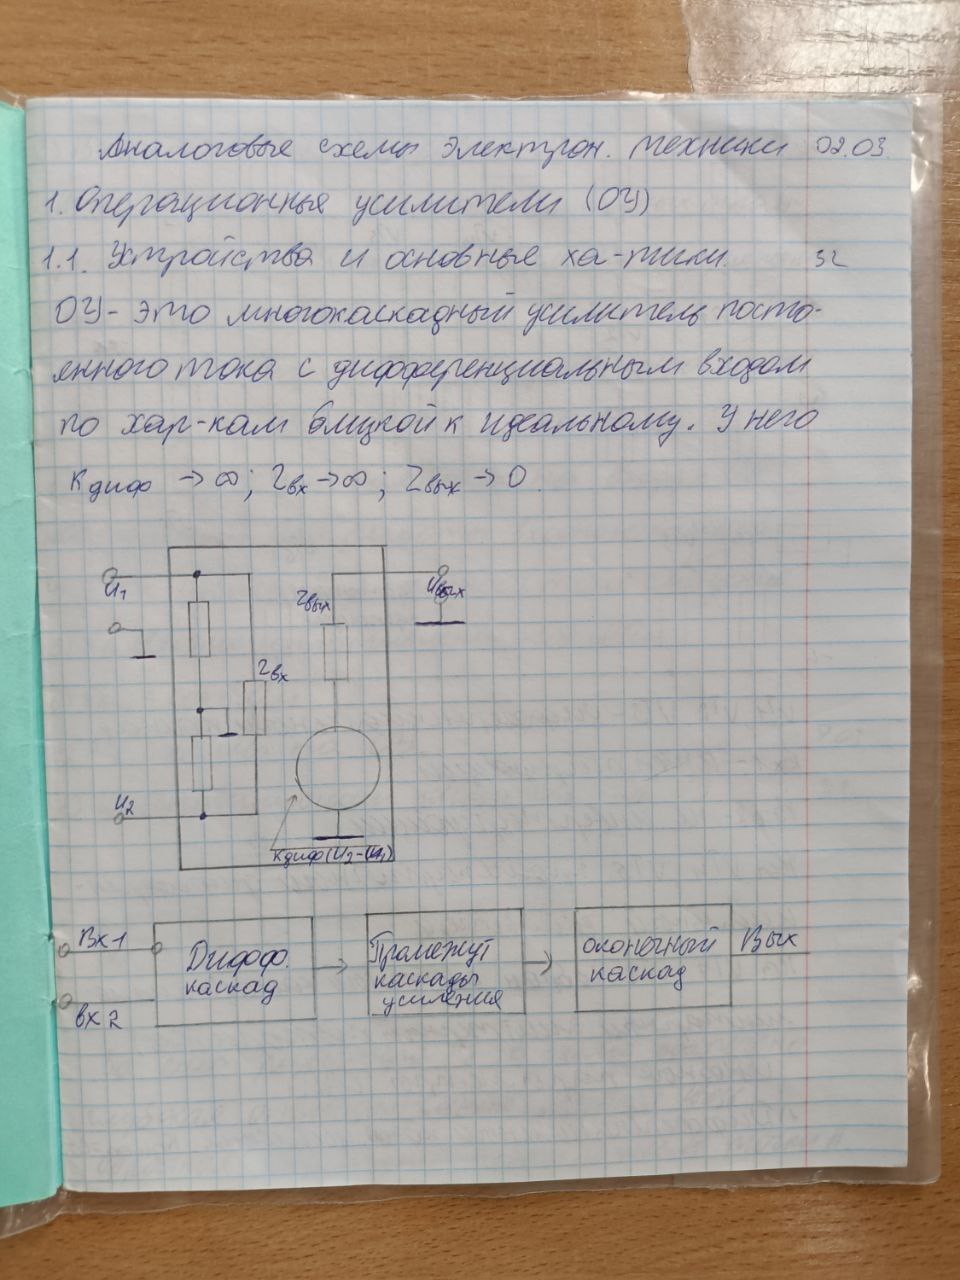 Аналоговые схемы электрон. техники 02.03.
1. Операционные усилители (ОУ)
1.1. Устройства и основные ха-тики.
ОУ- это многокаскадный усилитель посто-
янного тока с дифференциальным входом
по хар-кам близкой к идеальному. У него
Kдиф → ∞; Zвх → ∞; Zвых → 0.
U1
Zвых
Uвых
Zвх
U2
Kдиф(U2-U1)
Вх1
Дифф.
каскад
Промежут
каскады
усиления
оконечный
каскад
Вых
вх2